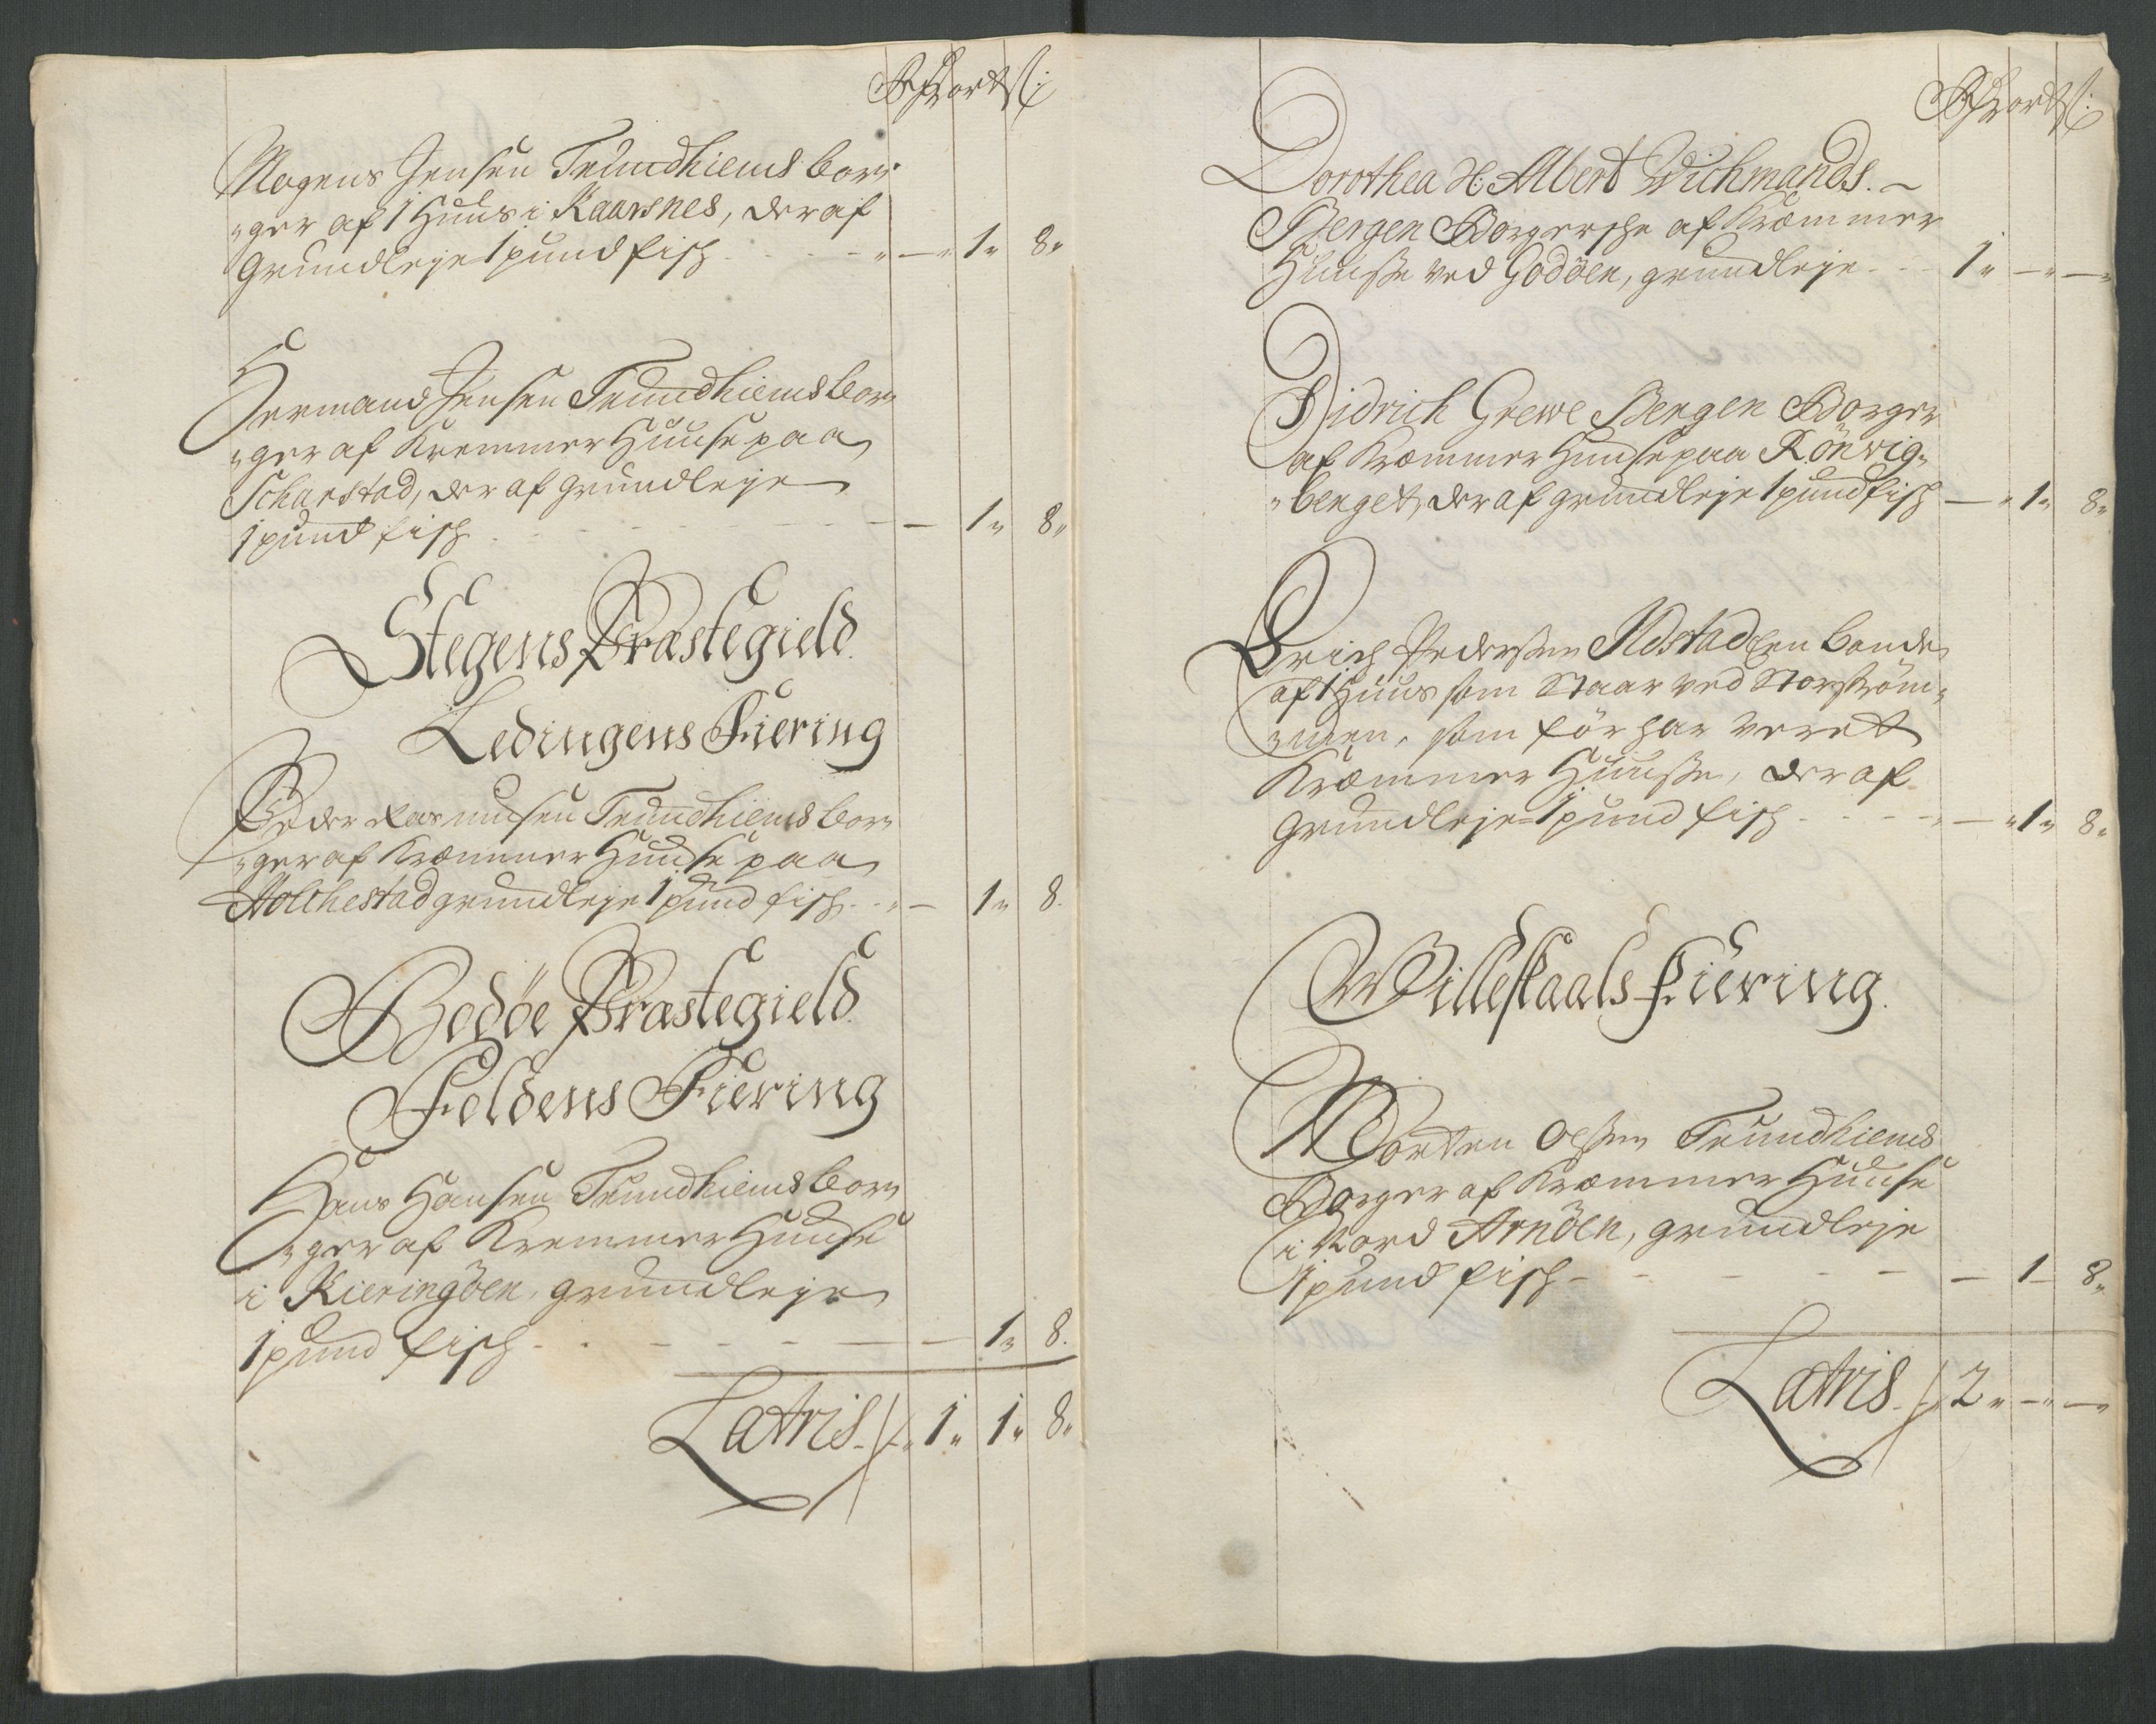 Mogens Jensen Trundhiems bor-
ger af 1 Huus i Kaarsnes, der af
Grundleje 1 pund fisch . . . " — " 1 " 8 "
Hermand Jensen Trundhiems bor-
ger af Kremmer Huuse paa
Scharstad, der af grundleje
1 pund fisch — 1 " 8 "
Stegens Præstegield.
Ledingens Fiering
Peder Rasmusen Trundhiems bor-
ger af Kræmmer Huuse paa
Holchestad grundleje 1 pund fisch . . " — 1 " 8.
Bodöe Præstegield.
Foldens Fiering
Hans Hansen Trundhiems bor-
ger af Kremmer Huuse
i Kieringöen, grundleje
1 pund fisch — 1 " 8.
Latris // " 1 " 1 " 8 "
Dorothea Albert Wichmands. ~
Bergen Borgersche af Kræmmer
Huusse ved Godöen, grundleje . . 1 " — " — "
Didrich Grewe Bergen Borger
af Kræmmer Huuse paa Rönvig-
berget, der af grundleje 1 pund fisch — " 1 " 8 "
Erich Pedersen Aldstad En bonde
af 1 Huus som Staar ved Storström-
men, som för har veret
Kræmmer Huusse, der af
Grundleje 1 pund fisch . . . " — " 1 " 8 "
Willeskaals Fiering.
Morten Olsen Trundhiems
Borger af Kræmmer Huuse
i Nord Arnöen, grundleje
1 pund fisch — — 1 — 8 "
Latris // 2 " — " — "